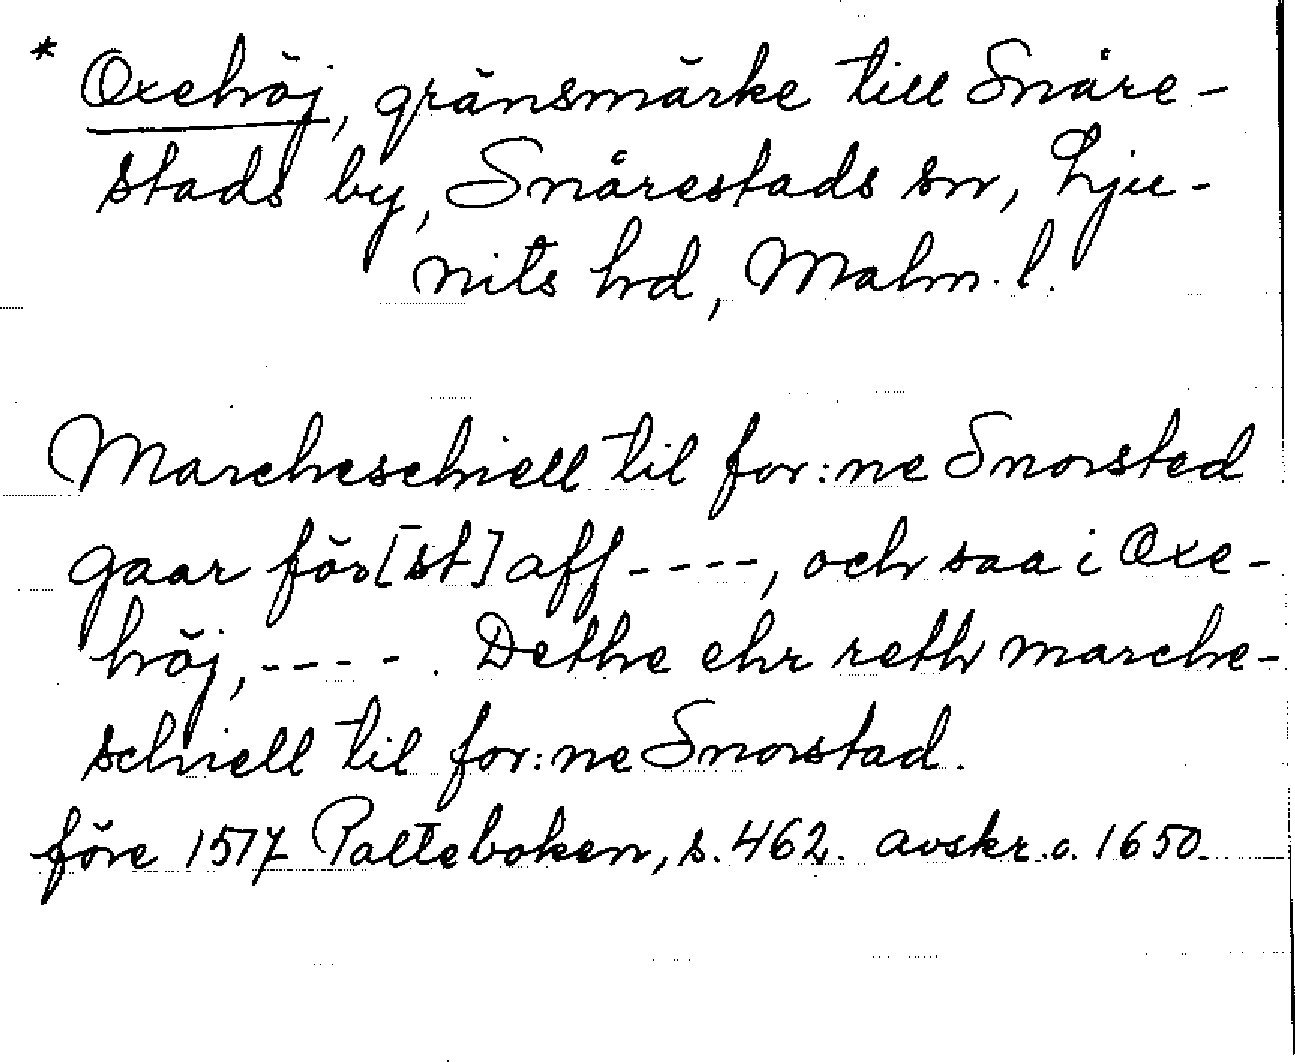 * Oxehöj, gränsmärke till Snåre-
stads by, Snårestads sn, Lju-
nits hd, Malm. l.
Marcheschiell til for:ne Snorsted
gaar för[st] aff ----, och saa i Oxe-
höj, ----. Dethe ehr reth marche-
schiell til for:ne Snorstad.
före 1517 Palteboken, s. 462. avskr. c. 1650.